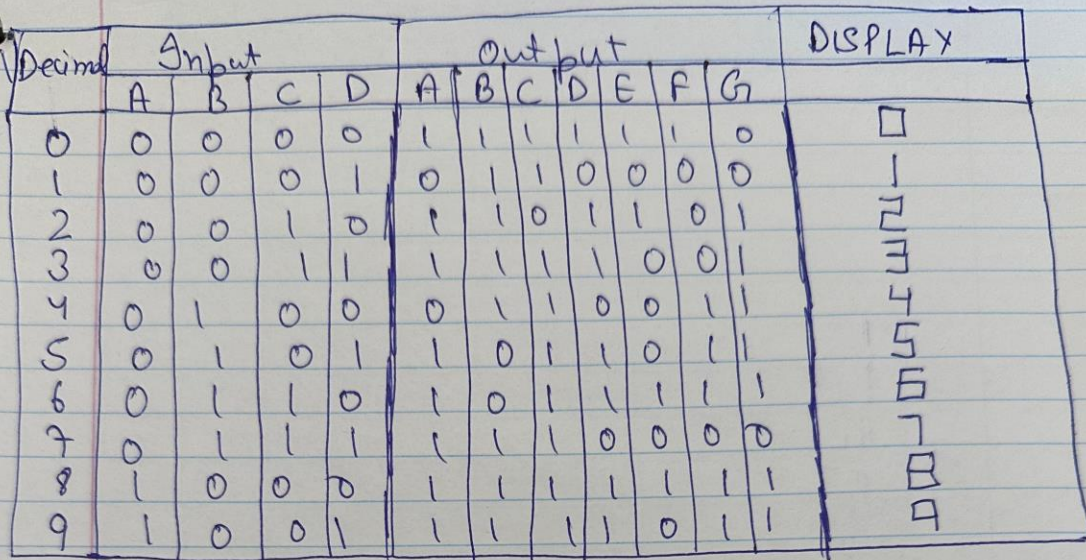 Decimal Input Output DISPLAY
A B C D A B C D E F G
0 0 0 0 0 1 1 1 1 1 1 0 0
1 0 0 0 1 0 1 1 0 0 0 0 1
2 0 0 1 0 1 1 0 1 1 0 1 2
3 0 0 1 1 1 1 1 1 0 0 1 3
4 0 1 0 0 0 1 1 0 0 1 1 4
5 0 1 0 1 1 0 1 1 0 1 1 5
6 0 1 1 0 1 0 1 1 1 1 1 6
7 0 1 1 1 1 1 1 0 0 0 0 7
8 1 0 0 0 1 1 1 1 1 1 1 8
9 1 0 0 1 1 1 1 1 0 1 1 9